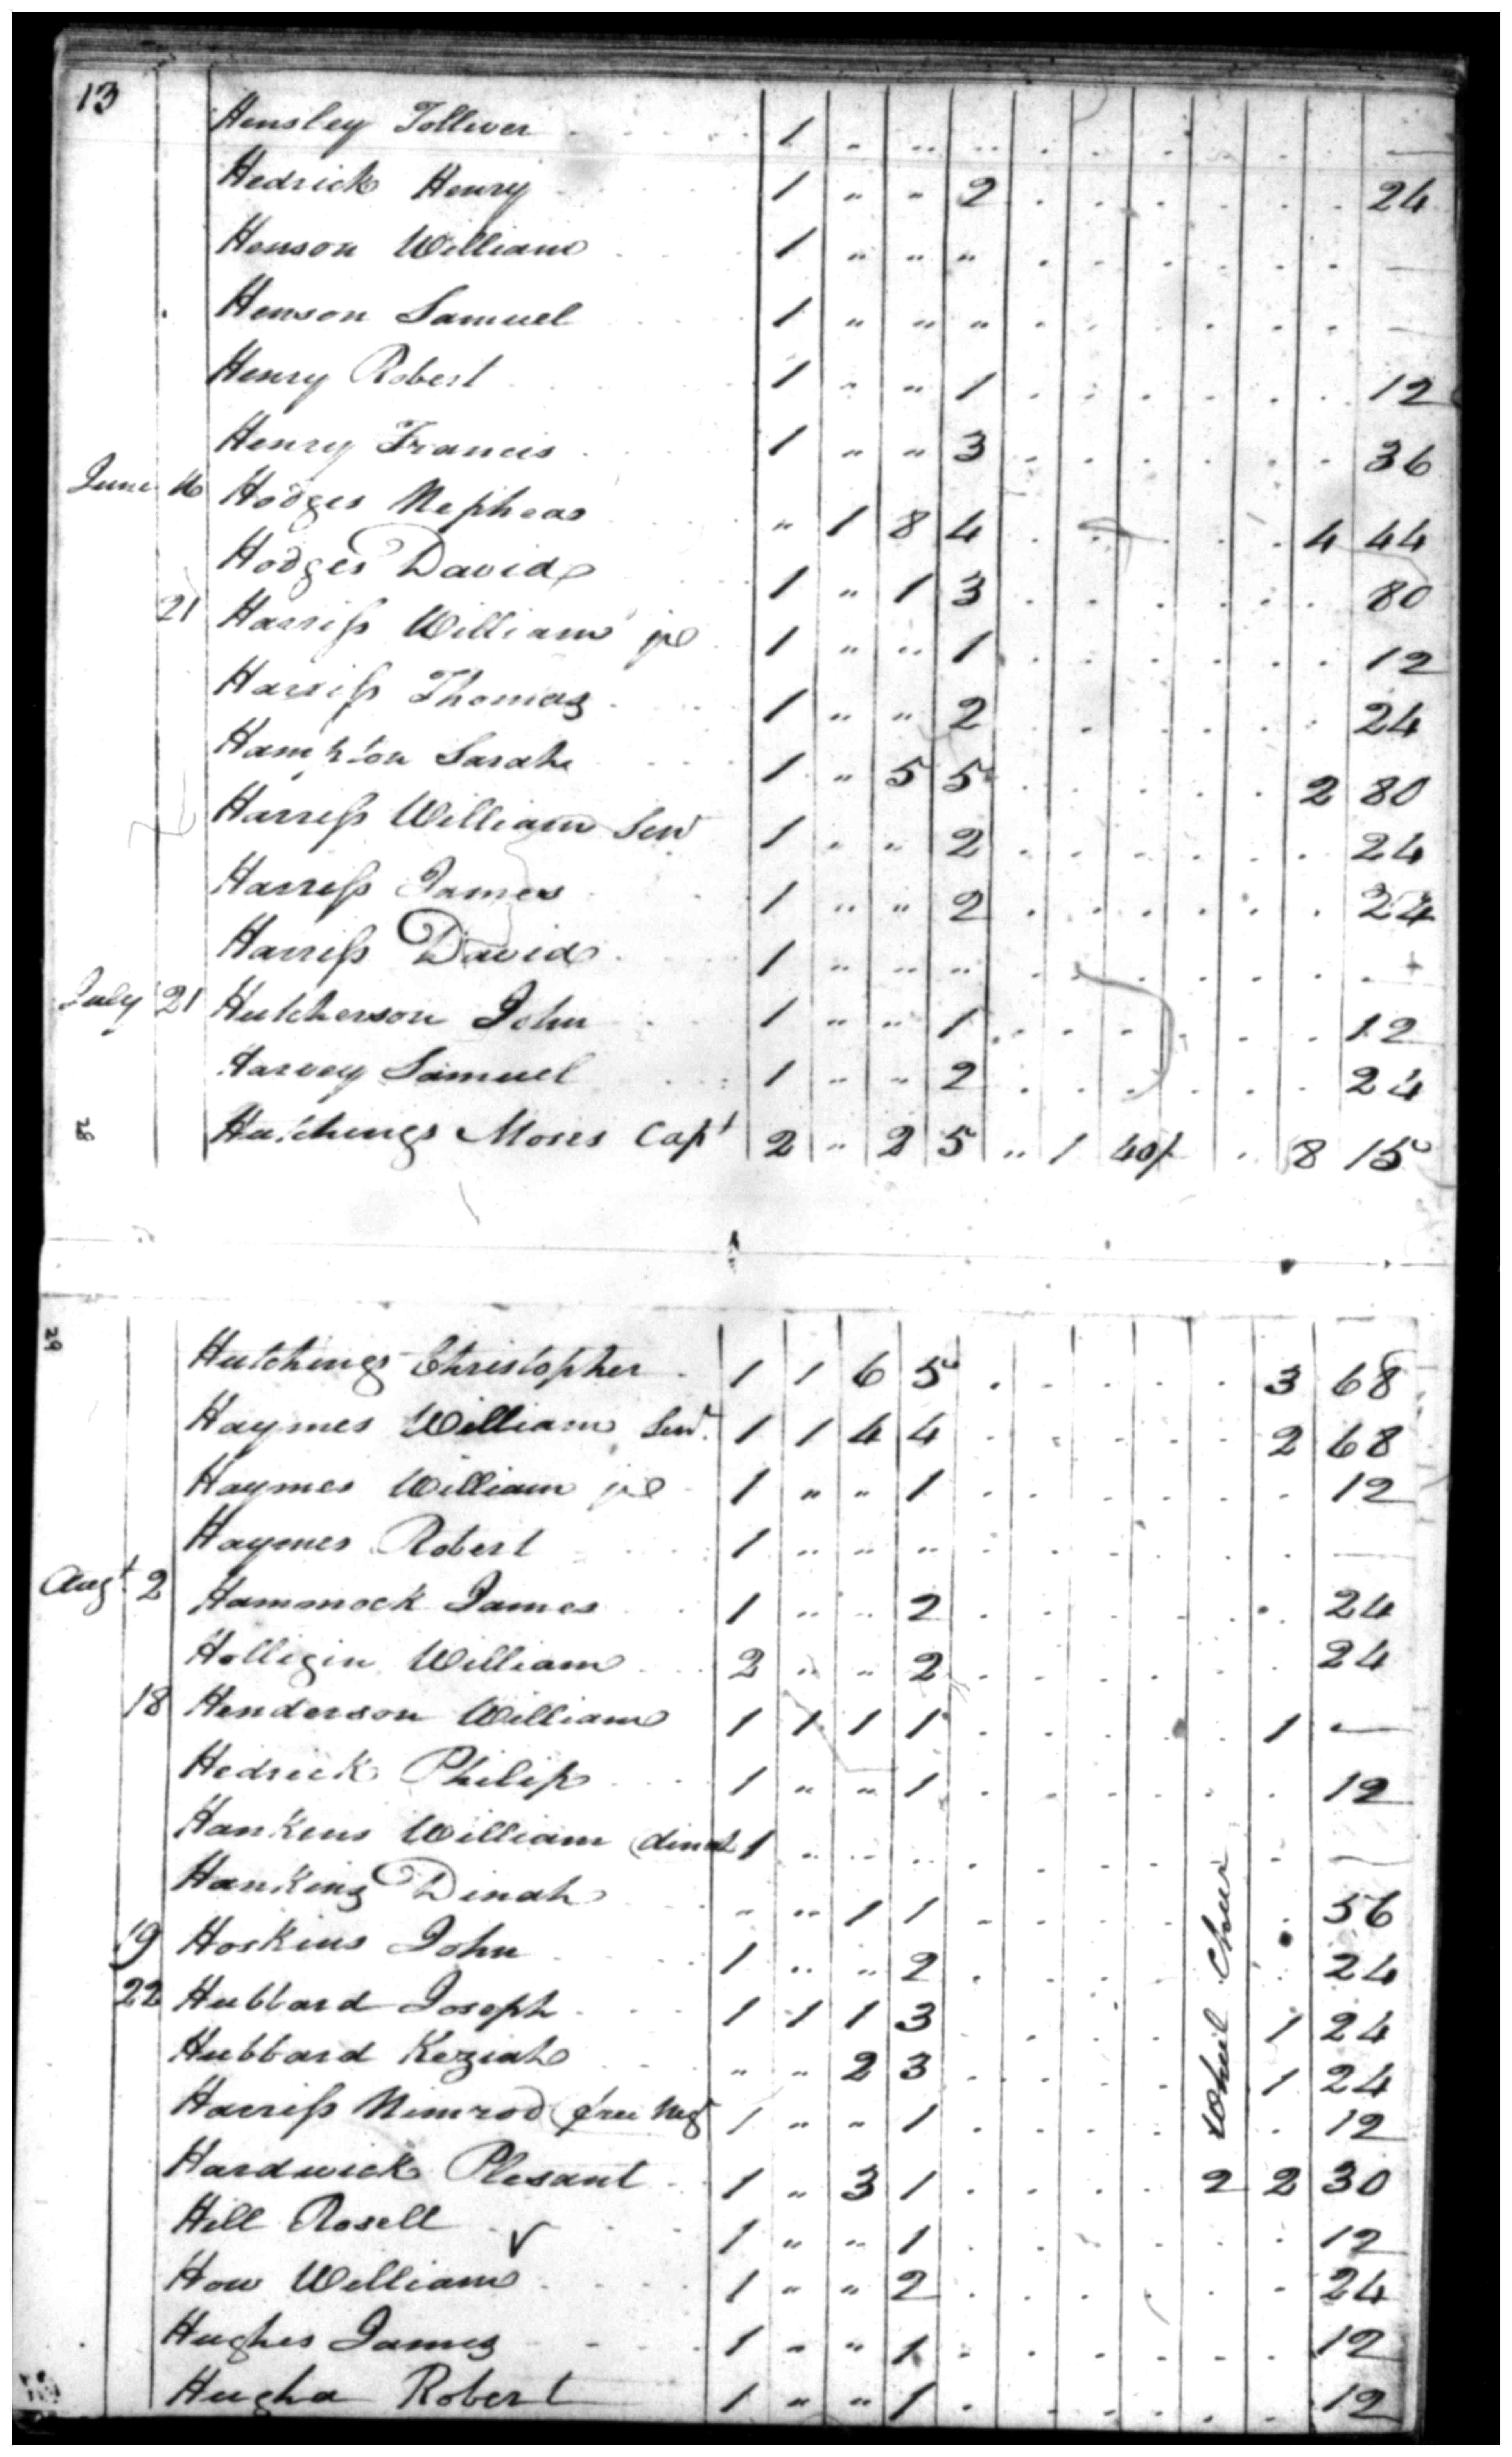 13
Hensley Tolliver 1 " " " . . . . . . . —
Hedrick Henry 1 " " 2 . . . . . . . 24
Henson William 1 " " " . . . . . . . —
Henson Samuel 1 " " " . . . . . . . —
Henry Robert 1 " " 1 . . . . . . . 12
Henry Francis 1 " " 3 . . . . . . . 36
June 16 Hodges Mepheas " 1 8 4 . . . . . . 4 44
Hodges David 1 " 1 3 . . . . . . . 80
21 Harriss William jr 1 " " 1 . . . . . . . 12
Harriss Thomas 1 " " 2 . . . . . . . 24
Hampton Sarah 1 " 5 5 . . . . . . 2 80
Harriss William Senr 1 " " 2 . . . . . . . 24
Harriss James 1 " " 2 . . . . . . . 24
Harriss David 1 " " " . . . . . . . —
July 21 Hutcherson John 1 " " 1 . . . . . . . 12
Harvey Samuel 1 " " 2 . . . . . . . 24
28 Hutchings Moses Capt 2 " 2 5 " 1 40/ . 8 15
29 Hutchings Christopher 1 1 6 5 . . . . . 3 68
Haymes William Senr. 1 1 4 4 . . . . . 2 68
Haymes William jr 1 " " 1 . . . . . . 12
Haymes Robert 1 " " " . . . . . . —
Augt. 2 Hammock James 1 " " 2 . . . . . . 24
Holligin William 2 " " 2 . . . . . . 24
18 Henderson William 1 1 1 1 . . . . . 1 —
Hedrick Philip 1 " " 1 . . . . . . 12
Hankins William (dinah 1 " " " . . . . . . —
Hankins Dinah " " 1 1 . . . . . . 56
19 Hoskins John 1 " " 2 . . . . . . 24
22 Hubbard Joseph 1 1 1 3 . . . . 1 24
Hubbard Keziah " " 2 3 . . . . 1 24
Harriss Nimrod (free Neg 1 " " 1 . . . . . 12
Hardwick Plesant 1 " 3 1 . . . . 2 2 30
Hill Rosell 1 " " 1 . . . . . . 12
How William 1 " " 2 . . . . . . 24
Hughes James 1 " " 1 . . . . . . 12
Hughs Robert 1 " " 1 . . . . . . 12